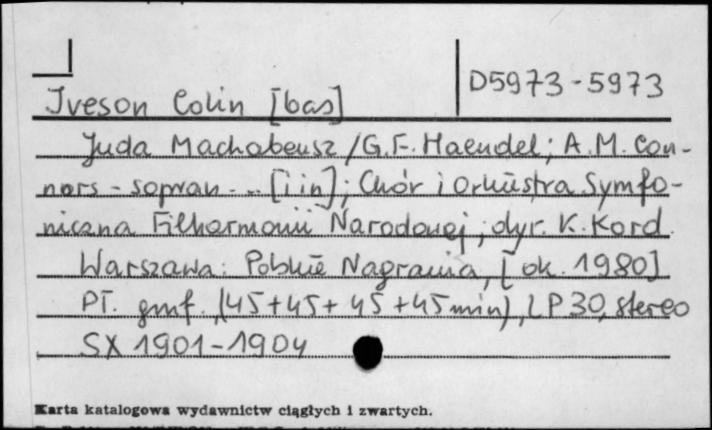 D5973-5973
Iveson Colin [bas]
Juda Machabeusz / G.F. Haendel; A.M. Con-
nors - sopran ... [i in]; Chór i Orkiestra Symfo-
niczna Filharmonii Narodowej; dyr. K. Kord.
Warszawa: Polskie Nagrania, [ok. 1980]
Pł. gmf. (45+45+45+45 min), LP30, stereo
SX 1901-1904
Karta katalogowa wydawnictw ciągłych i zwartych.